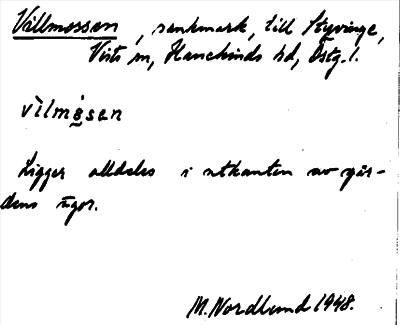 Villmossen, sankmark, till Styvinge,
Vists sn, Hanekinds hd, Östg. l.
vìlmósen
Ligger alldeles i utkanten av går-
dens ägor.
M. Nordlund 1948.